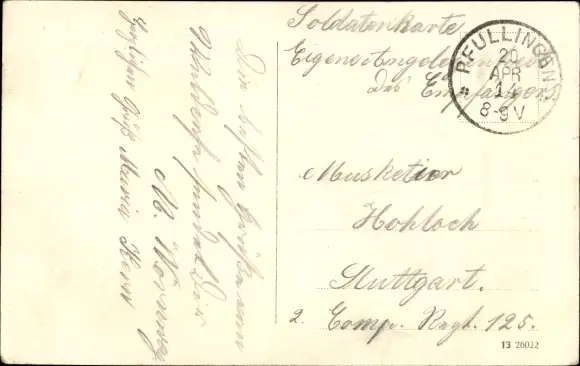 Soldatenkarte
Eigene Angelegenheit
des Empfängers
PFULLINGEN
20
APR
14
8-9 V
Musketier
Hohloch
Stuttgart.
2. Comp. Regt. 125.
13 26022
Die besten Grüße vom
sendet Dir
M.
Herzlichen Gruß Maria Kern